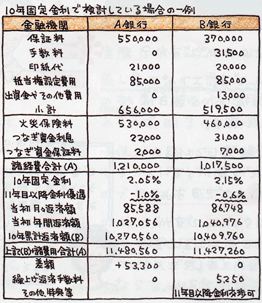 10年固定金利で検討している場合の一例
金融機関 A銀行 B銀行
保証料 550,000 370,000
手数料 0 31,500
印紙代 21,000 20,000
抵当権設定費用 85,000 85,000
出資金やその他費用 0
小計 656,000 519,500
火災保険料 530,000 460,000
つなぎ資金利息 22,000 31,000
つなぎ資金保証料 2,000 7,000
諸経費合計(A) 1,210,000 1,017,500
10年固定金利 2.05% 2.15%
11年目以降金利優遇 -1.0% -0.6%
当初月々返済額 85,588 86,748
当初年間返済額 1,027,056 1,040,976
10年累計返済額(B) 10,270,560 10,409,760
上記(B)+諸費用合計(A) 11,480,560 11,427,260
差額 +53,300 0
繰上げ返済手数料 0 5250
その他特徴等 11年目以降金利交渉可